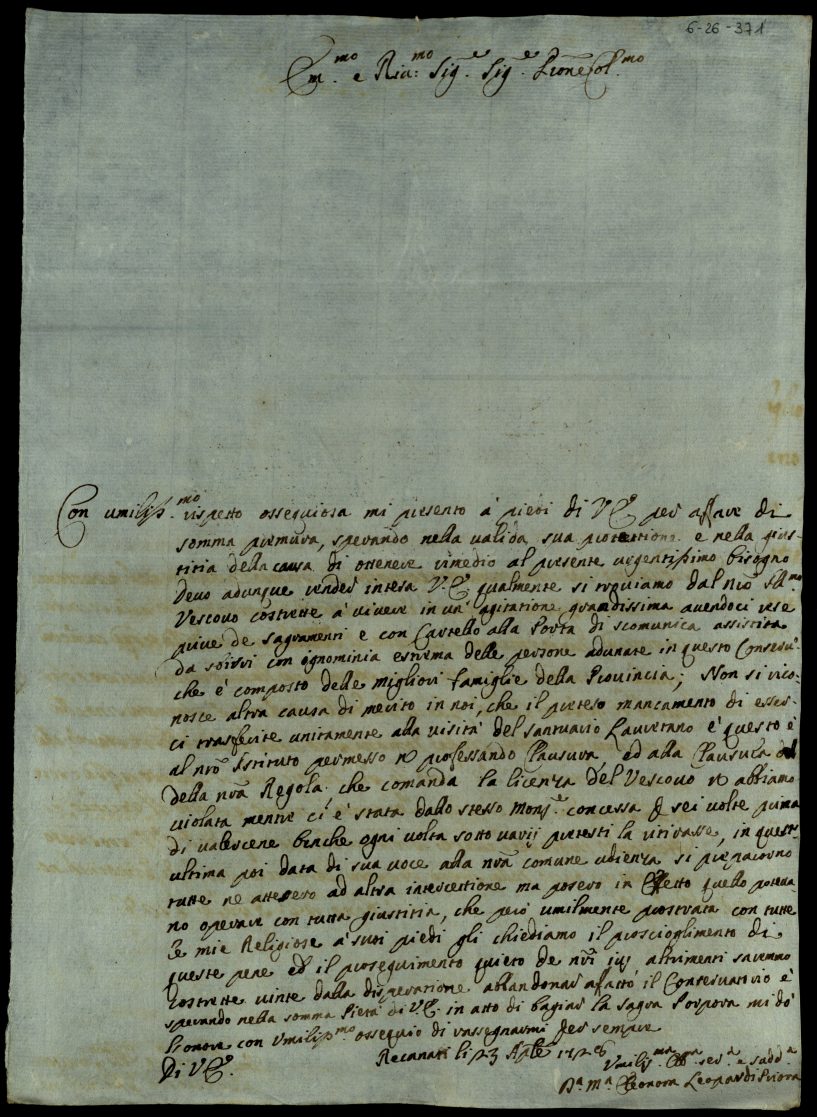 6-26-371
Em.mo e Riu:mo Sig.e Sig.e Prone Col.mo
Con umiliss.mo rispetto ossequiosa mi presento à piedi di V.E. per affare di
somma premura, sperando nella valida sua protettione e nella gius-
titia della causa di ottenere rimedio al presente urgentissimo bisogno
Devo adunque render intesa V.E. qualmente si trouiamo dal nrõ
Vescouo costrette à viuere in un' agitatione grandissima auendoci rese
priue de sagramenti e con Cartello alla Porta di scomunica assistita
da sbirri con ignominia estrema delle persone adunate in questo Conseru.
che è composto delle migliori famiglie della Prouincia; Non si rico-
nosce altra causa di merito in noi, che il preteso mancamento di esser-
ci trasferite unitamente alla visita del santuario Lauretano è questo è
al nrõ Istituto permesso nõ professando Clausura, ed alla Clausula
della nrã Regola, che comanda la licenza del Vescouo nõ abbiamo
violata mentre ci è stata dallo stesso Mons.e concessa p sei volte prima
di valescene benche ogni volta sotto varij pretesti la ritirasse, in quest'
ultima poi data di sua voce alla nrã comune udienza si prepararono
tutte ne attesero ad altra intercettione ma posero in Effetto quello poteua-
no operare con tutta giustitia, che però umilmente prostrata con tutte
le mie Religiose à suoi piedi gli chiediamo il proscioglimento di
queste pene ed il proseguimento quieto de nrĩ altrimenti saremo
costrette vinte dalla disperatione abbandonar affatto il Conseruatorio è
sperando nella somma Pietà di V.E. in atto di bagiar la sagra Porpora mi dò
l'onore con Umiliss.mo ossequio di rassegnarmi per sempre
Di V.E. Recanati li 23 Aple 1728
Umiliss.ma ser.a e sudd.a
D.a M.a Eleonora Leopardi Priora